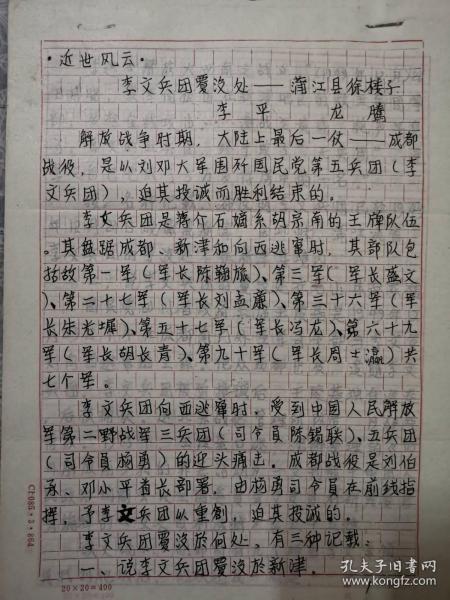 ·近世风云·
李文兵团覆没处——蒲江县徐㨂子
李平 龙腾
解放战争时期，大陆上最后一仗——成都
战役，是以刘邓大军围歼国民党第五兵团（李
文兵团），迫其投诚而胜利结束的。
李文兵团是蒋介石嫡系胡宗南的王牌队伍
。其盘踞成都、新津和向西逃窜时，其部队包
括故第一军（军长陈鞠旅）、第三军（军长盛文
）、第二十七军（军长刘孟廉）、第三十六军（军
长朱光墀）、第五十七军（军长冯龙）、第六十九
军（军长胡长青）、第九十军（军长周士瀛）共
七个军。
李文兵团向西逃窜时，受到中国人民解放
军第二野战军三兵团（司令员陈锡联）、五兵团
（司令员杨勇）的迎头痛击。成都战役是刘伯
承、邓小平首长部署，由杨勇司令员在前线指
挥，予李文兵团以重创，迫其投诚的。
李文兵团覆没於何处，有三种记载：
一、说李文兵团覆没於新津。
20×20=400
孔夫子旧书网
www.kongfz.com